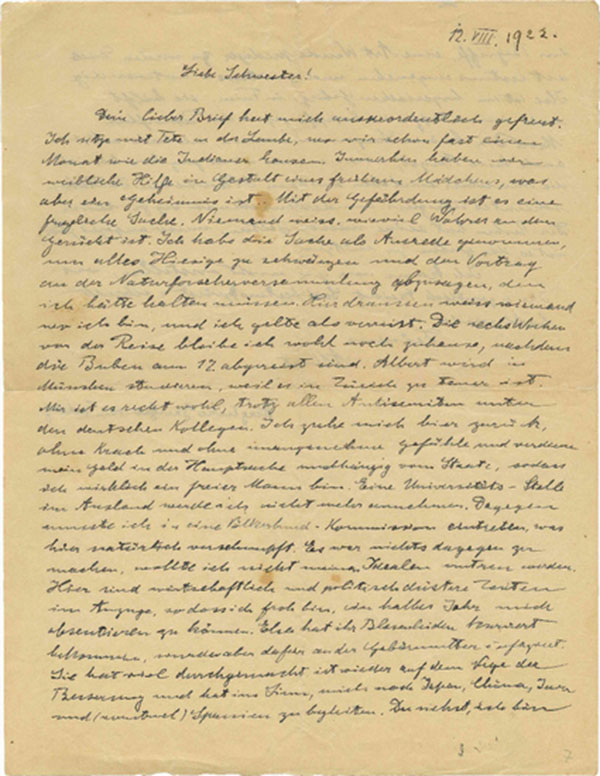 12. VIII. 1922.
Liebe Schwester!
Dein lieber Brief hat mich ausserordentlich gefreut.
Ich sitze mit Tete in der Laube, wo wir schon fast einen
Monat wie die Indianer hausen. Immerhin haben wir
weibliche Hilfe in Gestalt eines früheren Mädchens, was
aber ein Geheimnis ist. Mit der Gefährdung ist es eine
fragliche Sache. Niemand weiss, wieviel Wahres an dem
Gerücht ist. Ich habe die Sache als Ausrede genommen,
um alles Hiesige zu schwänzen und den Vortrag
an der Naturforscherversammlung abzusagen, den
ich hätte halten müssen. Hier draussen weiss niemand
wo ich bin, und ich gelte als verreist. Die sechs Wochen
vor der Reise bleibe ich wohl noch zuhause, nachdem
die Buben am 17 abgereist sind. Albert wird in
München studieren, weil es in Zürich zu teuer ist.
Mir ist es recht wohl, trotz allen Antisemiten unter
den deutschen Kollegen. Ich ziehe mich hier zurück,
ohne Krach und ohne unangenehme Gefühle und verdiene
mein Geld in der Hauptsache unabhängig vom Staate, sodass
ich wirklich ein freier Mann bin. Eine Universitäts-Stelle
im Ausland werde ich nicht mehr annehmen. Dagegen
musste ich in eine Völkerbund-Kommission eintreten, was
hier natürlich verschnupft. Es war nichts dagegen zu
machen, wollte ich nicht meinen Idealen untreu werden.
Hier sind wirtschaftlich und politisch düstere Zeiten
im Anzuge, sodass ich froh bin, ein halbes Jahr mich
absentieren zu können. Else hat ihr Blasenleiden kuriert
bekommen, wurde aber dafür an der Gebärmutter infiziert.
Sie hat viel durchgemacht ist wieder auf dem Wege der
Besserung und hat im Sinn, mich nach Japan, China, Java
und (eventuel) Spanien zu begleiten. Du siehst, ich bin
7